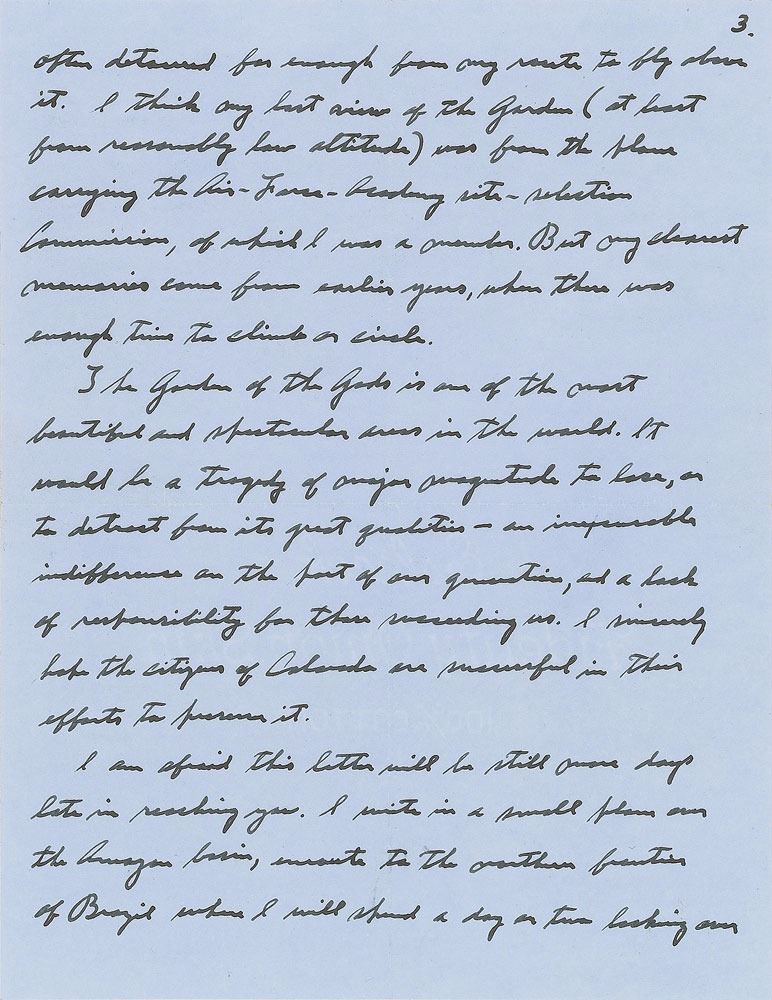 3.
often detoured far enough from my route to fly above
it. I think my last view of the Garden (at least
from reasonably low altitude) was from the plane
carrying the Air-Force-Academy site-selection
Commission, of which I was a member. But my clearest
memories come from earlier years, when there was
enough time to climb or circle.
The Garden of the Gods is one of the most
beautiful and spectacular areas in the world. It
would be a tragedy of major magnitude to lose, or
to detract from its great qualities — an inexcusable
indifference on the part of our generation, and a lack
of responsibility for those succeeding us. I sincerely
hope the citizens of Colorado are successful in their
efforts to preserve it.
I am afraid this letter will be still more days
late in reaching you. I write in a small plane over
the Amazon basin, enroute to the northern frontier
of Brazil where I will spend a day or two looking over